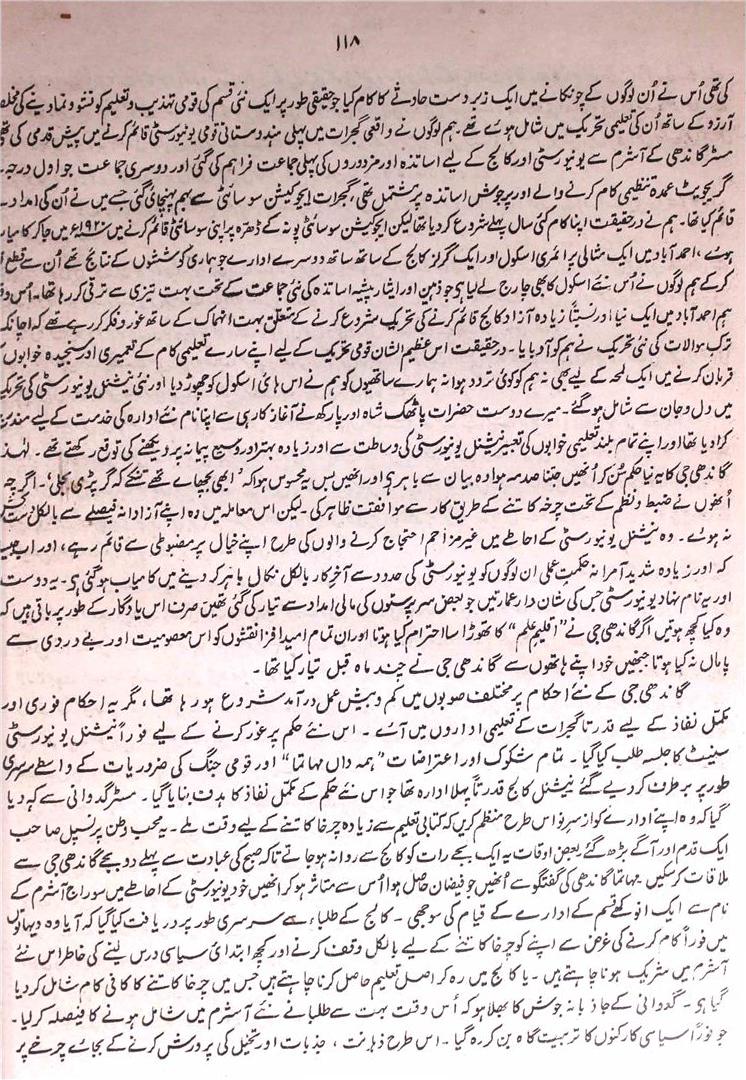 ۱۱۸
کی تھی اُس نے اُن لوگوں کے چونکانے میں ایک زبردست حادثے کا کام کیا جو حقیقی طور پر ایک نئی قسم کی قومی تہذیب و تعلیم کو نشو و نما دینے کی
آرزو کے ساتھ اُن کی تعلیمی تحریک میں شامل ہوئے تھے۔ ہم لوگوں نے واقعی گجرات میں پہلی ہندوستانی قومی یونیورسٹی قائم کرنے میں پیش قدمی کی
مسٹر گاندھی کے آشرم سے یونیورسٹی اور کالج کے لیے اساتذہ اور مزدوروں کی پہلی جماعت فراہم کی گئی اور دوسری جماعت جو اول درجہ
گریجویٹ عمدہ تنظیمی کام کرنے والے اور پرجوش اساتذہ پر مشتمل تھی، گجرات ایجوکیشن سوسائٹی سے بہم پہنچائی گئی جس نے اُن کی امداد
قائم کیا تھا۔ ہم نے درحقیقت اپنا کام کئی سال پہلے شروع کر دیا تھا لیکن ایجوکیشن سوسائٹی پونہ کے ڈھرہ پر اپنی سوسائٹی قائم کرنے میں ۱۹۲۰ء میں جا کر
ہوئے، احمدآباد میں ایک مثالی پرائمری اسکول اور ایک گرلز کالج کے ساتھ ساتھ دوسرے ادارے جو ہماری کوششوں کے نتائج تھے اُن سے قطع
کر کے ہم لوگوں نے اُس نئے اسکول کا بھی چارج لے لیا ہی جو ذہین اور ایثار پیشہ اساتذہ کی نئی جماعت کے تحت بہت تیزی سے ترقی کر رہا تھا۔ اُس
ہم احمدآباد میں ایک نیا اور نسبتاً زیادہ آزاد کالج قائم کرنے کی تحریک شروع کرنے کے متعلق بہت انہماک کے ساتھ غور و فکر کر رہے تھے کہ اچانک
ترک موالات کی نئی تحریک نے ہم کو آدبایا۔ درحقیقت اس عظیم الشان قومی تحریک کے لیے اپنے سارے تعلیمی کام کے تعمیری اور سنجیدہ خوابوں
قربان کرنے میں ایک لمحہ کے لیے بھی نہ ہم کو کوئی تردد ہوا نہ ہمارے ساتھیوں کو ہم نے اس ہائی اسکول کو چھوڑ دیا اور نئی نیشنل یونیورسٹی کی تحریک
میں دل و جان سے شامل ہو گئے۔ میرے دوست حضرات پاٹھک شاہ اور پارکھ نے آغاز کار ہی سے اپنا نام نئے ادارہ کی خدمت کے لیے
کرا دیا تھا اور اپنے تمام بلند تعلیمی خوابوں کی تعبیر نیشنل یونیورسٹی کی وساطت سے اور زیادہ بہتر اور وسیع پیمانہ پر دیکھنے کی توقع رکھتے تھے۔ لہٰذا
گاندھی جی کا یہ نیا حکم سُن کر اُنھیں جتنا صدمہ ہوا وہ بیان سے باہر ہی اور انھیں بس یہ محسوس ہوا کہ ’ابھی بچھائے تھے تنکے کہ گر پڑی بجلی‘۔ اگرچہ
اُنھوں نے ضبط و نظم کے تحت چرخہ کاتنے کے طریق کار سے موافقت ظاہر کی۔ لیکن اس معاملہ میں وہ اپنے آزادانہ فیصلے سے بالکل
نہ ہوئے۔ وہ نیشنل یونیورسٹی کے احاطے میں غیر مزاحم احتجاج کرنے والوں کی طرح اپنے خیال پر مضبوطی سے قائم رہے، اور اب
کہ اور زیادہ شدید آمرانہ حکمت عملی ان لوگوں کو یونیورسٹی کی حدود سے آخر کار بالکل نکال باہر کر دینے میں کامیاب ہو گئی ہی۔ یہ دوست
اور یہ نام نہاد یونیورسٹی جس کی شان دار عمارتیں جو بعض سرپرستوں کی مالی امداد سے تیار کی گئی تھیں صرف اس یادگار کے طور پر باقی ہیں کہ
وہ کیا کچھ ہوتیں اگر گاندھی جی نے ”اقلیم علم“ کا تھوڑا سا احترام کیا ہوتا اور ان تمام امید افزا نقشوں کو اس معصومیت اور بے دردی سے
پامال نہ کیا ہوتا جنھیں خود اپنے ہاتھوں سے گاندھی جی نے چند ماہ قبل تیار کیا تھا۔
گاندھی جی کے نئے احکام پر مختلف صوبوں میں کم و بیش عمل درآمد شروع ہو رہا تھا، مگر یہ احکام فوری اور
مکمل نفاذ کے لیے قدرتاً گجرات کے تعلیمی اداروں میں آئے۔ اس نئے حکم پر غور کرنے کے لیے فوراً نیشنل یونیورسٹی
سینٹ کا جلسہ طلب کیا گیا۔ تمام شکوک اور اعتراضات ”ہمہ داں مہاتما“ اور قومی جنگ کی ضروریات کے واسطے سرسری
طور پر برطرف کر دیے گئے نیشنل کالج قدرتاً پہلا ادارہ تھا جو اس نئے حکم کے مکمل نفاذ کا ہدف بنایا گیا۔ مسٹر گدوانی سے کہہ دیا
گیا کہ وہ اپنے ادارے کو از سر نو اس طرح منظم کریں کہ کتابی تعلیم سے زیادہ چرخا کاتنے کے لیے وقت ملے۔ یہ محب وطن پرنسپل صاحب
ایک قدم اور آگے بڑھ گئے بعض اوقات یہ ایک بجے رات کو کالج سے روانہ ہو جاتے تاکہ صبح کی عبادت سے پہلے دو بجے گاندھی جی سے
ملاقات کر سکیں۔ مہاتما گاندھی کی گفتگو سے اُنھیں جو فیضان حاصل ہوا اُس سے متاثر ہو کر انھیں خود یونیورسٹی کے احاطے میں سوراج آشرم کے
نام سے ایک انوکھے قسم کے ادارے کے قیام کی سوجھی۔ کالج کے طلباء سے سرسری طور پر دریافت کیا گیا کہ آیا وہ دیہاتوں
میں فوراً کام کرنے کی غرض سے اپنے کو چرخا کاتنے کے لیے بالکل وقف کرنے اور کچھ ابتدائی سیاسی درس لینے کی خاطر اس نئے
آشرم میں شریک ہونا چاہتے ہیں۔ یا کالج میں رہ کر اصل تعلیم حاصل کرنا چاہتے ہیں جس میں چرخا کاتنے کا کافی کام شامل کر دیا
گیا ہی۔ گدوانی کے جاذبانہ جوش کا بھلا ہو کہ اُس وقت بہت سے طلبا نے نئے آشرم میں شامل ہونے کا فیصلہ کر لیا۔
جو فوراً سیاسی کارکنوں کا تربیت گاہ بن کر رہ گیا۔ اس طرح ذہانت، جذبات اور تخیل کی پرورش کرنے کے بجائے چرخے پر